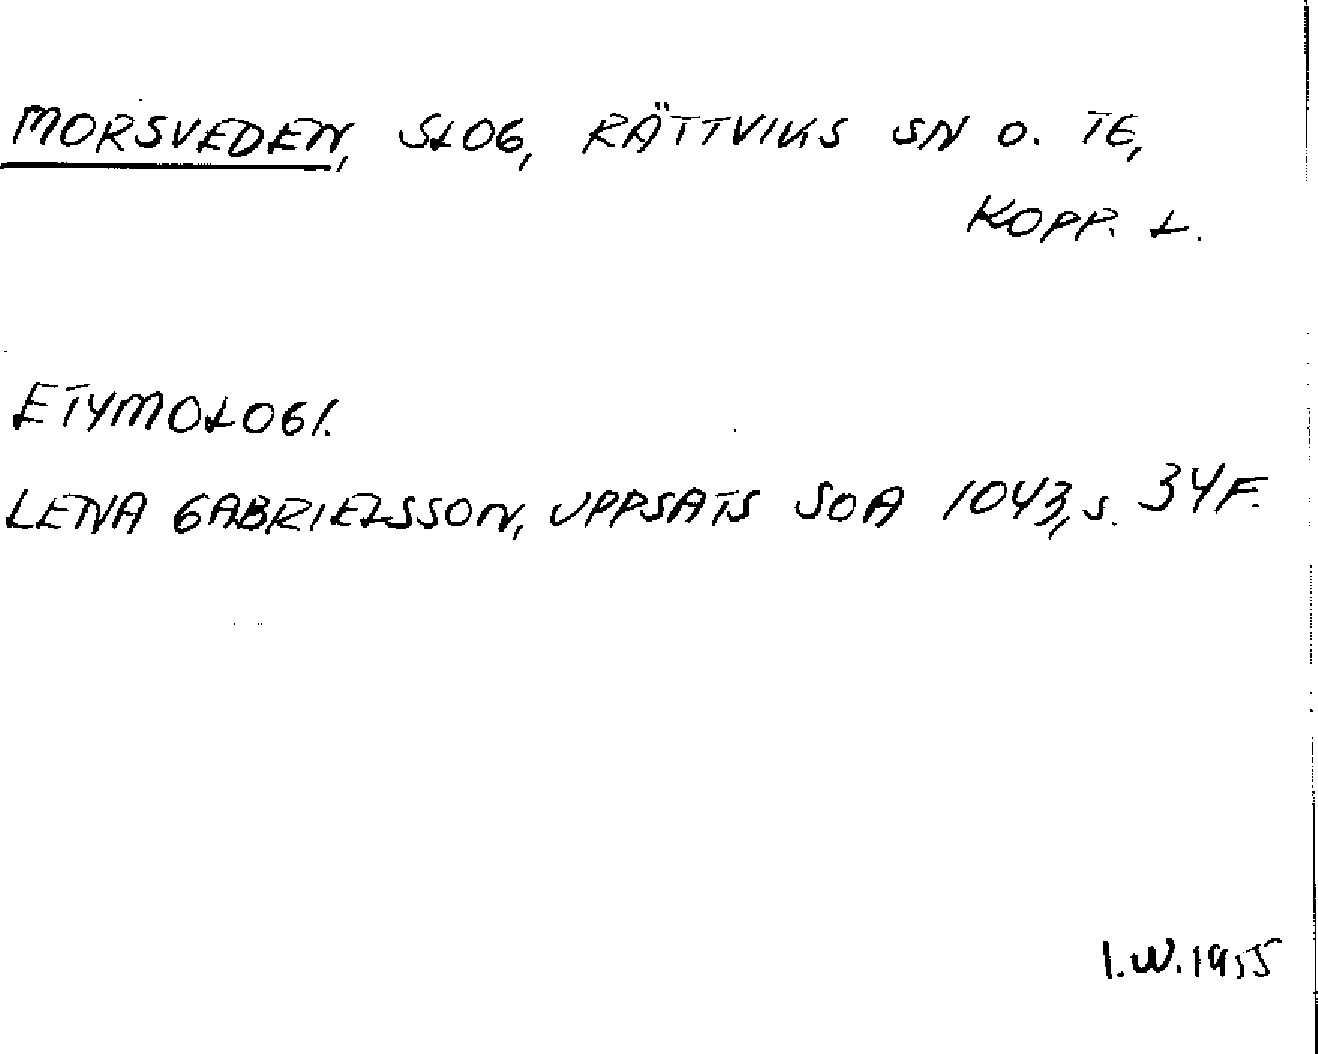 MORSVEDEN, SLOG, RÄTTVIKS SN O. TG,
KOPP. L.
ETYMOLOGI.
LENA GABRIELSSON, UPPSATS SOA 1043, S. 34F.
I.W. 1955